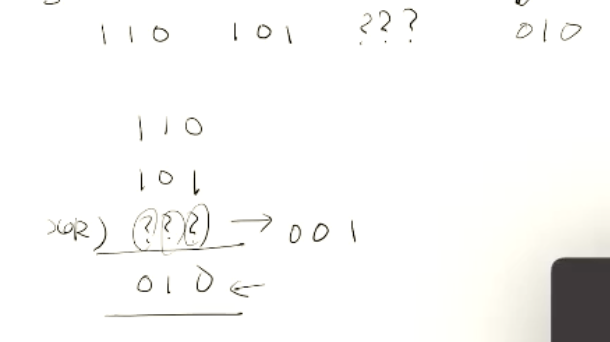 110 101 ??? 010
110
101
XOR) ??? → 001
010 ←